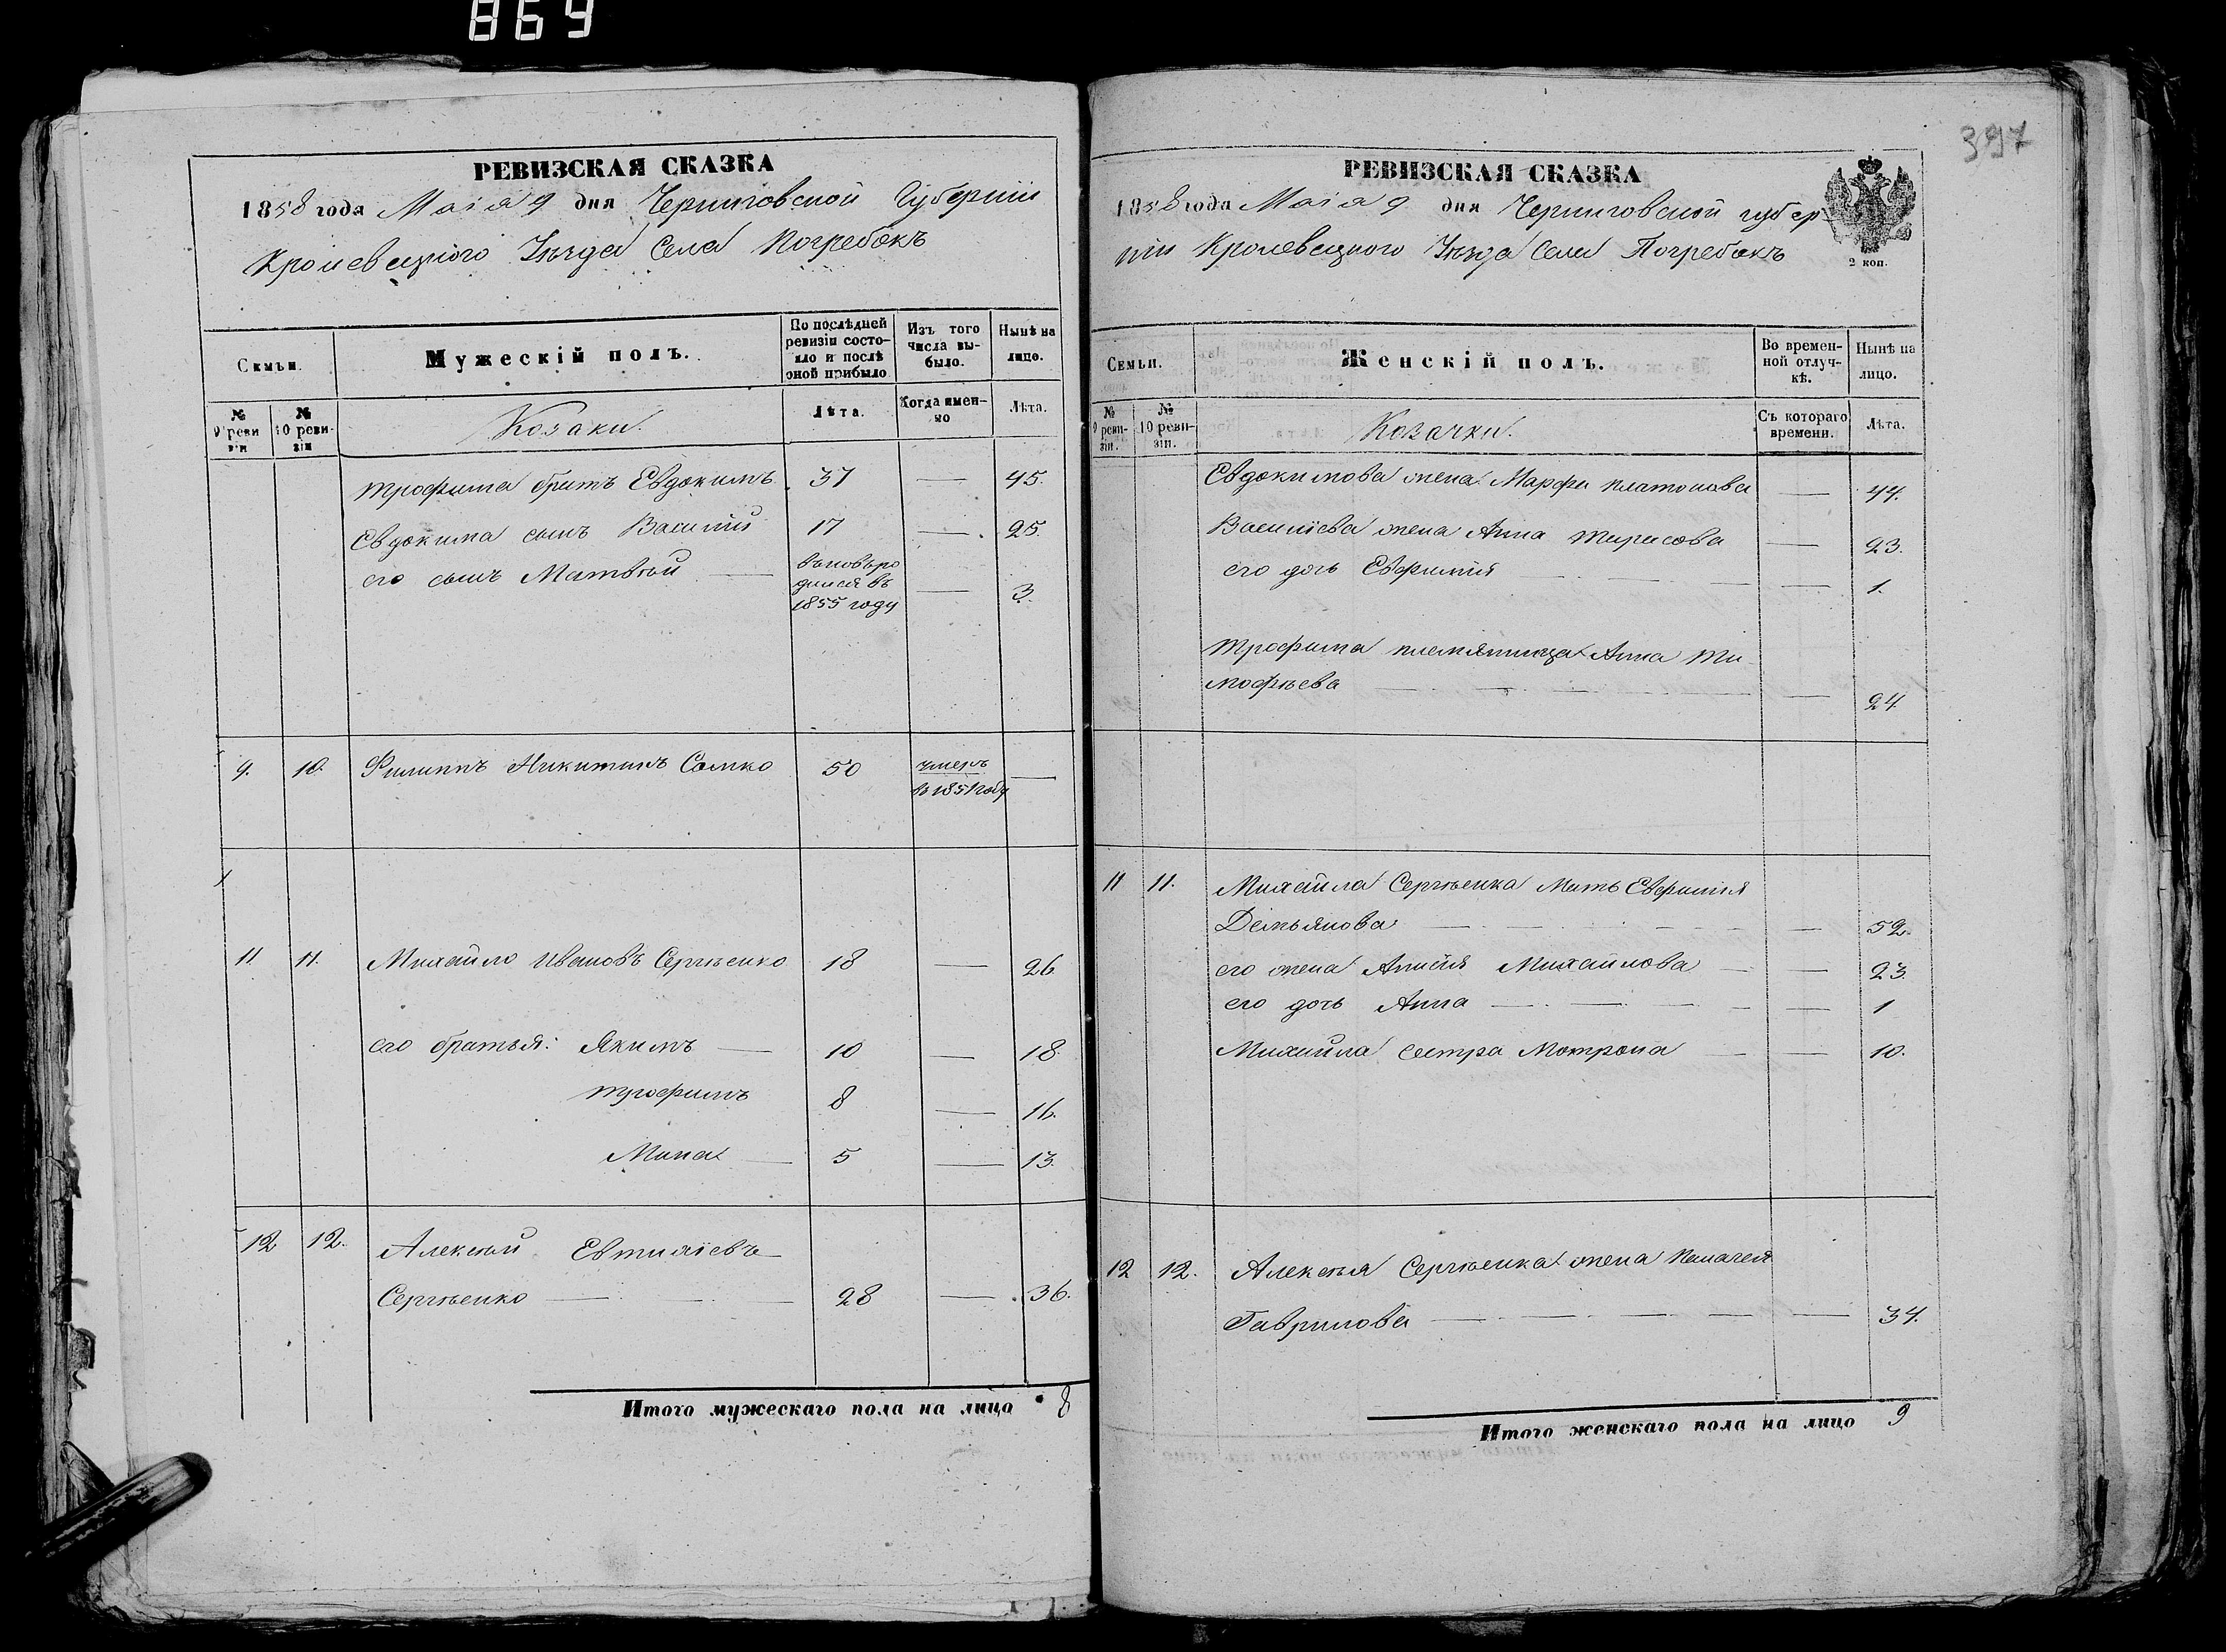 869
РЕВИЗСКАЯ СКАЗКА
1858 года Маія 9 дня Черниговской Губерніи
Кролевецкого Уѣзда Села Погребокъ
Семьи.
Мужескій полъ.
По послѣдней ревизіи состояло и послѣ оной прибыло
Изъ того числа выбыло.
Нынѣ на лицо.
№ 9 реви зіи
№ 10 ревизіи
Козаки.
Лѣта.
Когда именно
Лѣта.
Трофима братъ Евдокимъ 37 — 45.
Евдокима сынъ Василій 17 — 25.
его сынъ Матвѣй — вновь ро
дился въ
1855 году — 3.
9. 10. Филиппъ Никитинъ Сомко 50 умеръ —
въ 1851 году
11 11. Михайло Ивановъ Сергѣенко 18 — 26
его братья: Якимъ — 10 — 18.
Трофимъ 8 — 16.
Мина — 5 — 13.
12 12. Алексѣй Евтихіевъ
Сергѣенко — 28 — 36.
Итого мужескаго пола на лицо 8
397
РЕВИЗСКАЯ СКАЗКА
1858 года Маія 9 дня Черниговской губер-
ніи Кролевецкого Уѣзда Села Погребокъ
2 коп.
Семьи.
Женскій полъ.
Во временной отлучкѣ.
Нынѣ на лицо.
№ 9 ревизіи.
№ 10 ревизіи.
Козачки.
Съ котораго времени.
Лѣта.
Евдокимова жена Марфа Платонова — 44.
Василіева жена Анна Тарасова — 23.
его дочь Евфимія — 1.
Трофима племянница Анна Ти-
мофѣева — 24.
11 11. Михайла Сергѣенка Мать Евфимія
Демьянова — 52.
его жена Михайлова — 23.
его дочь Анна — 1
Михайла сестра Мотрона — 10.
12 12. Алексѣя Сергѣенка жена Пелагея
Гаврилова — 34.
Итого женскаго пола на лицо 9